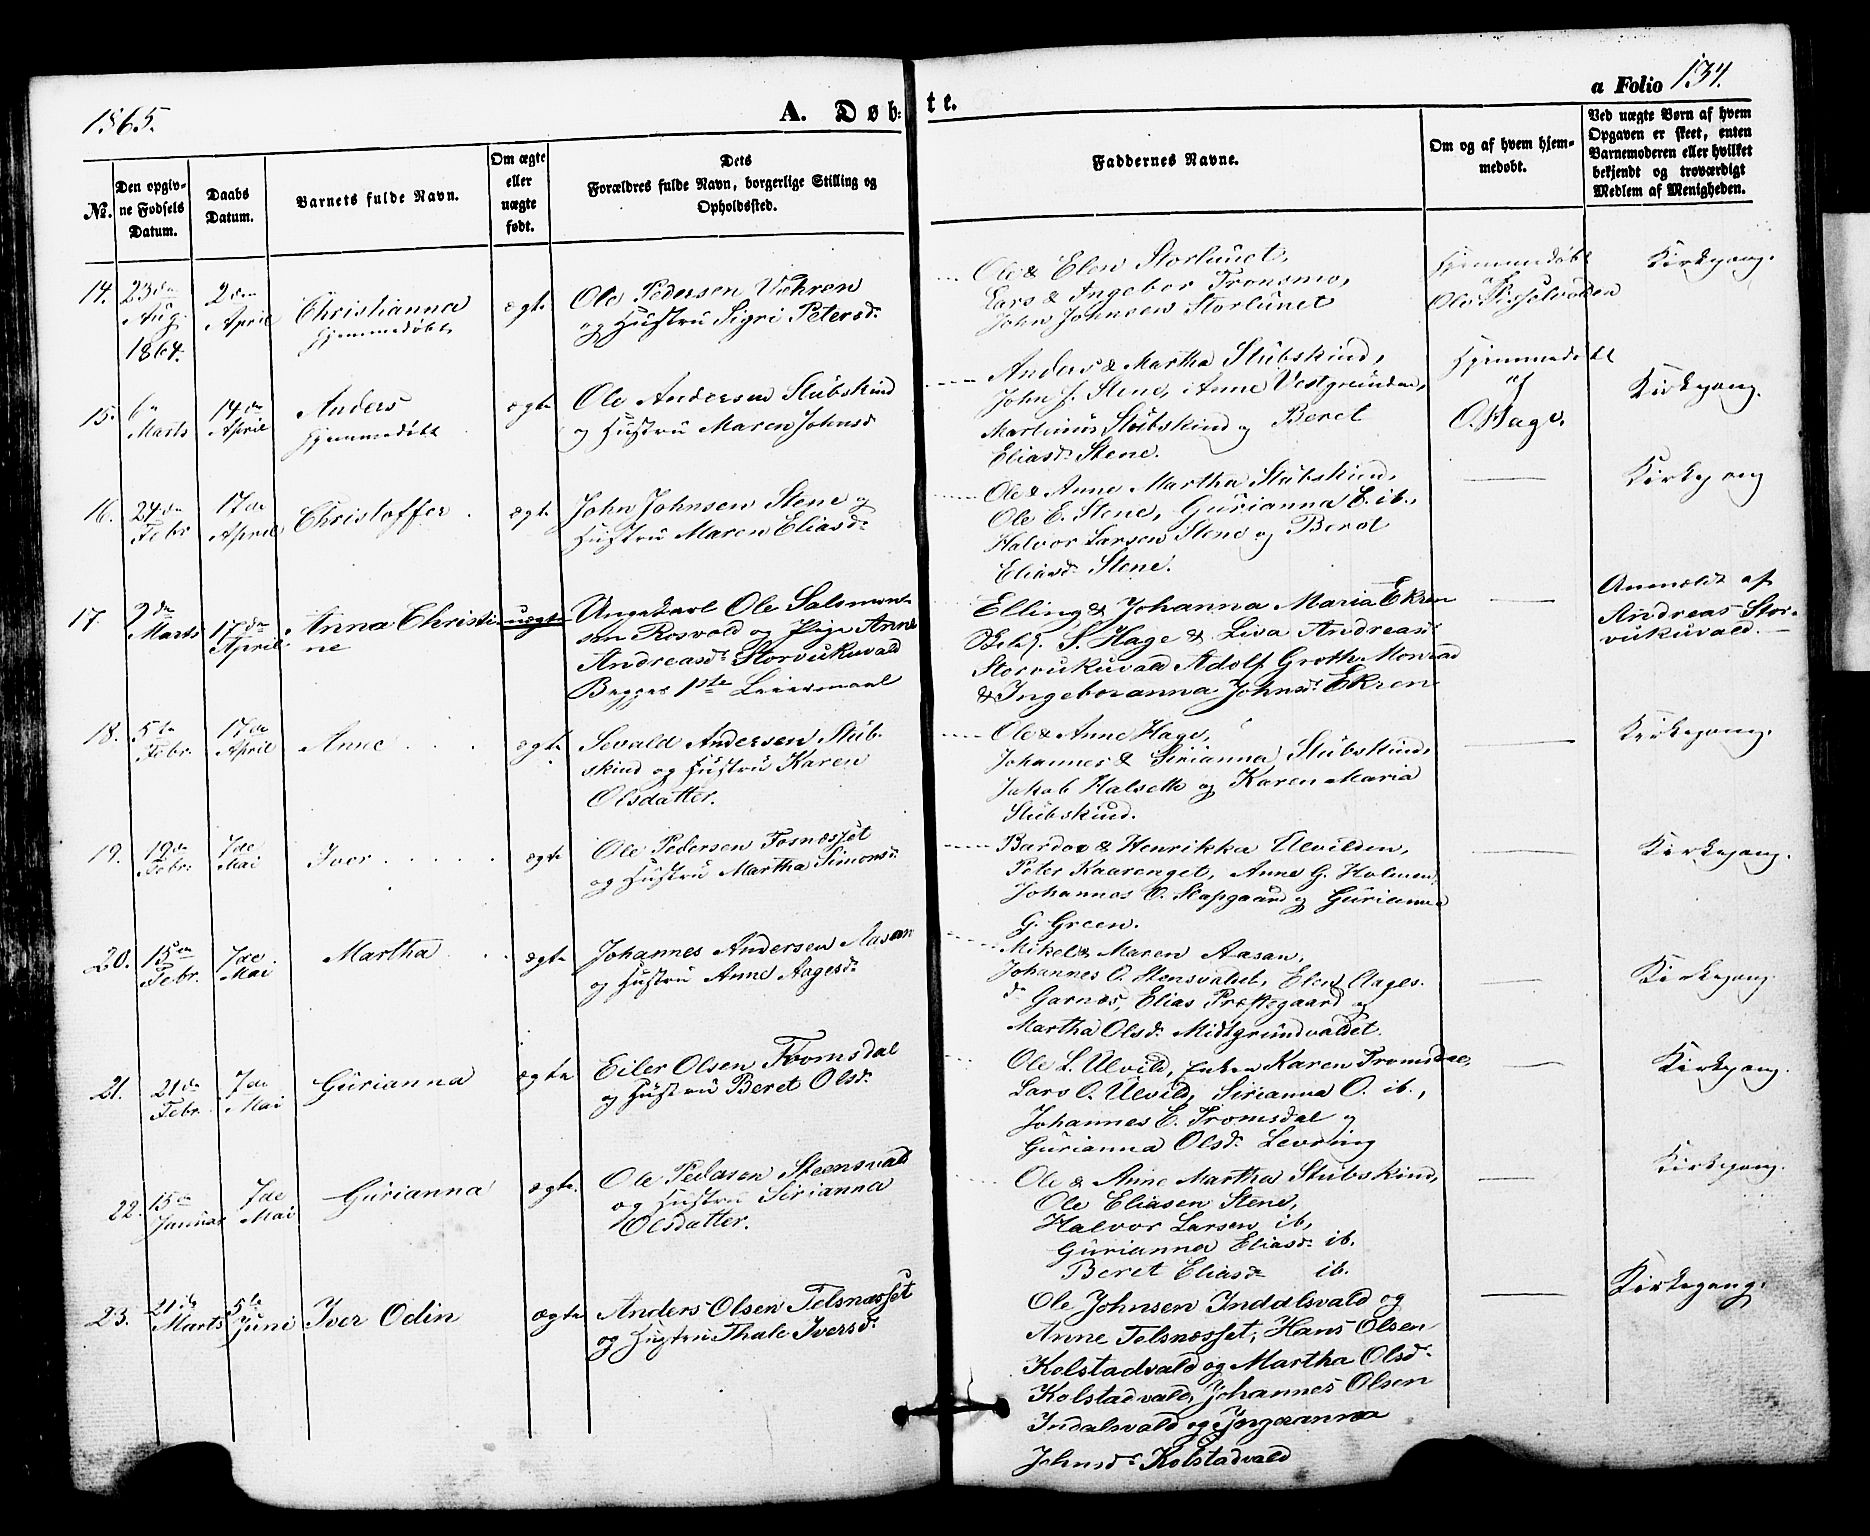 1865.
A. Døbte.
a Folio 134.
No.
Den opgiv-
ne Fødsels
Datum.
Daabs
Datum.
Barnets fulde Navn.
Om ægte
eller
uægte
født.
Dets
Forældres fulde Navn, borgerlige Stilling og
Opholdssted.
Faddernes Navne.
Om og af hvem hjem-
medøbt.
Ved uægte Børn af hvem
Opgaven er skeet, enten
Barnemoderen eller hvilket
bekjendt og troværdigt
Medlem af Menigheden.
14.
23de
Aug.
1864.
2den
April
Christianna
hjemmedøbt
ægte
Ole Pedersen Vohren
og Hustru Sigri Petersd.
Ole & Elen Storlunet,
Lars & Ingebor Tronsmo,
John Johnsen Storlunet
hjemmedøbt
af
Ole
Kirkegang.
15.
6te
Marts
14de
April
Anders
hjemmedøbt
ægte
Ole Andersen Stubskind
og Hustru Maren Johnsd
Anders & Martha Stubskind,
John J. Stene, Anne Vestgrunden,
Martinus Stubskind og Beret
Eliasd. Stene.
hjemmedøbt
af
O. Hage.
Kirkegang.
16.
24de
Febr
17de
April
Christoffer
ægte
John Johnsen Stene og
Hustru Maren Eliasd.
Ole & Anne Martha Stubskind,
Ole E. Stene, Gurianna E. ib.,
Halvor Larsen Stene og Beret
Eliasd. Stene.
Kirkegang
17.
2de
Marts
17de
April.
Anna Christi-
ne
uægte
Ungekarl Ole Salomon-
sen Rosvold og Pige Anne
Andreasd. Storvukuvald
Begges 1ste Leiermaal
Elling & Johanna Maria Ekren
S. Hage & Lisa Andreasd
Storvukuvald Adolf Groth Monrad
& Ingeboranna Johnsd. Ekren
Anmeldt af
Andreas Stor-
vukuvald.
18.
5te
Febr.
17de
April
Anne
ægte
Sevald Andersen Stub-
skind og Hustru Karen
Olsdatter.
Ole & Anne Hage,
Johannes & Sirianna Stubskind,
Jakob Halseth og Karen Maria
Stubskind.
Kirkegang.
19.
19de
Febr.
7de
Mai
Iver
ægte
Ole Pedersen Fosnæsset
og Hustru Martha Simonsd.
Bardo & Henrikka Ulvilden,
Peter Kaarenget, Anne G. Holmen,
Johannes O. Stapgaard og Gurianna
G. Green.
Kirkegang.
20.
15de
Febr.
7de
Mai
Martha
ægte
Johannes Andersen Aasan
og Hustru Anne Aagesd.
Mikel & Maren Aasan,
Johannes O. Stensvaldet, Elen Aages-
d. Garnæs, Elias Præstegaard og
Martha Olsd. Midtgrundvaldet.
Kirkegang.
21.
21de
Febr.
7de
Mai
Gurianna
ægte
Eiler Olsen Tromsdal
og Hustru Beret Olsd.
Ole L. Ulvild, Enken Karen Tromsdal,
Lars O. Ulvild, Sirianna O. ib.,
Johannes E. Tromsdal og
Gurianna Olsd. Levring
Kirkegang.
22.
15de
Januar
7de
Mai
Gurianna
ægte.
Ole Pedersen Steensvald
og Hustru Sirianna
Olsdatter.
Ole & Anne Martha Stubskind,
Ole Eliasen Stene,
Halvor Larsen ib,
Gurianna Eliasd. ib.
Beret Eliasd ib.
Kirkegang.
23.
21de
Marts
5te
Juni
Iver Odin
ægte
Anders Olsen Telsnæsset
og Hustru Thale Iversd.
Ole Johnsen Indalsvald og
Anne Telsnæsset, Hans Olsen
Kolstadvald og Martha Olsd.
Kolstadvald, Johannes Olsen
Indalsvald og Ingeranna
Johnsd. Kolstadvald
Kirkegang.